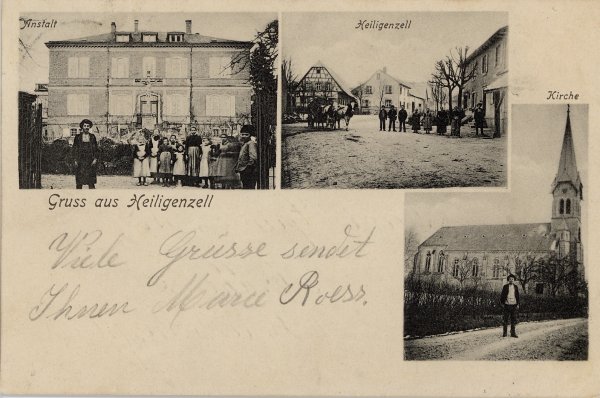 Anstalt
Heiligenzell
Kirche
Gruss aus Heiligenzell
Viele Grüsse sendet
Ihnen Marie Roess.